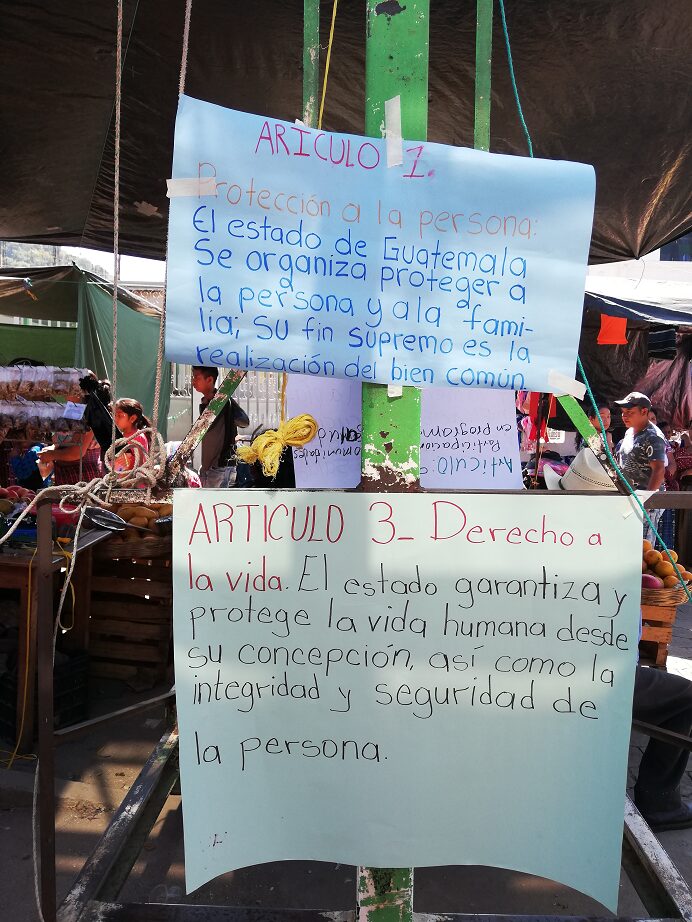 ARICULO 1.
Protección a la persona:
El estado de Guatemala
Se organiza proteger a
la persona y a la fami-
lia; Su fin supremo es la
realización del bien común
Articulo
Participación
en program
omunidades
ARTICULO 3_ Derecho a
la vida. El estado garantiza y
protege la vida humana desde
su concepción, así como la
integridad y seguridad de
la persona.